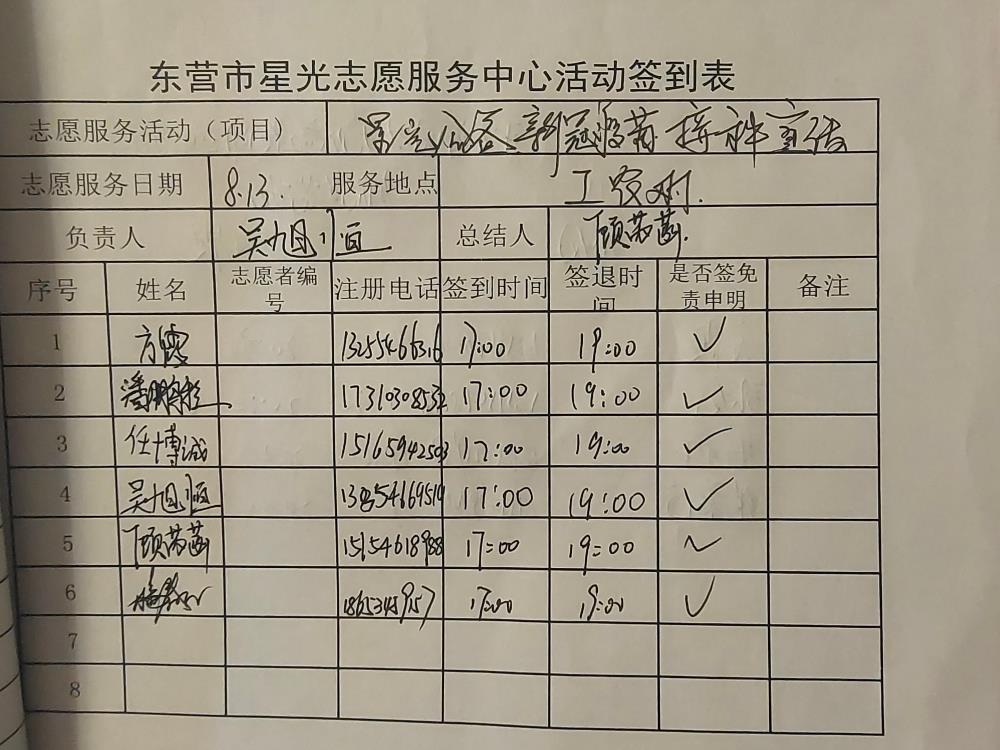 东营市星光志愿服务中心活动签到表
志愿服务活动（项目） 星光公益 新冠疫苗接种宣传
志愿服务日期 8.13. 服务地点 工农村.
负责人 吴旭恒 总结人 顾芳菡.
序号 姓名 志愿者编号 注册电话 签到时间 签退时间 是否签免责申明 备注
1 方露 13255466316 17:00 19:00 ✓
2 17310308532 17:00 19:00 ✓
3 任博诚 15165942503 17:00 19:00 ✓
4 吴旭恒 13854669519 17:00 19:00 ✓
5 顾芳菡 15154618988 17:00 19:00 ✓
6 17:00 19:00 ✓
7
8